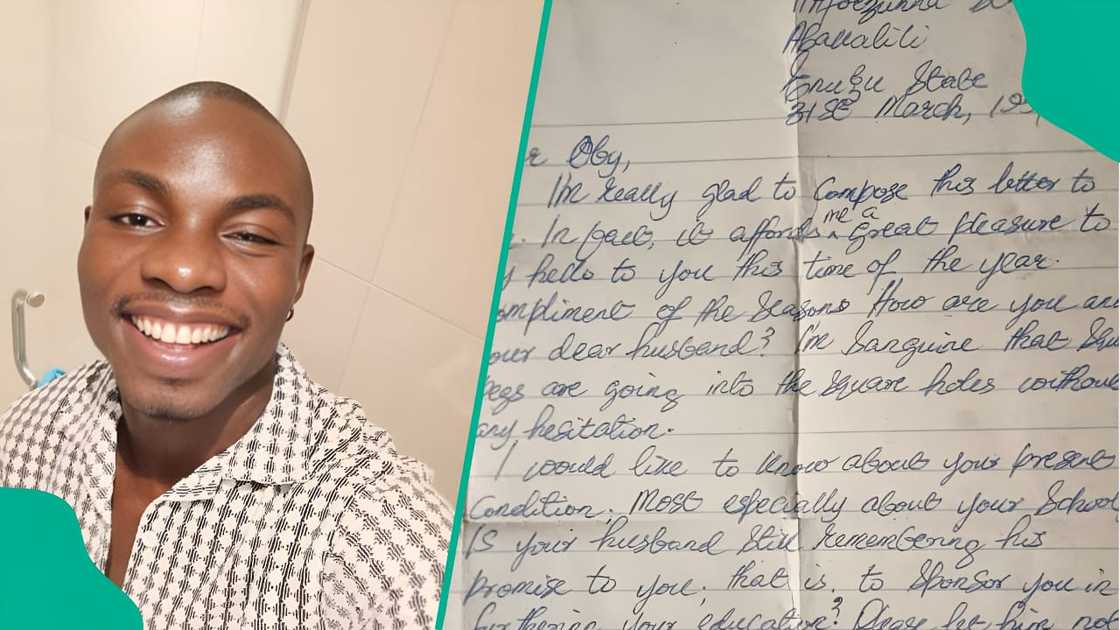 Abakaliki
Enugu State
31st March, 199
Oby,
I'm really glad to compose this letter to
In fact, it affords me a great pleasure to
hello to you this time of the year.
ompliment of the seasons How are you and
our dear husband? I'm sanguine that squ
pegs are going into the square holes without
any hesitation.
I would like to know about your present
condition. Most especially about your school
Is your husband still remembering his
promise to you, that is, to sponsor you in
furthering your education? Please let him not